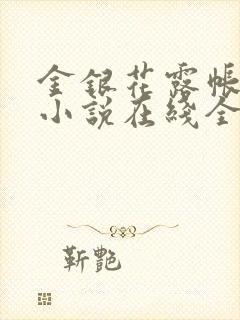 金银花露帐
小说在线全
靳艷